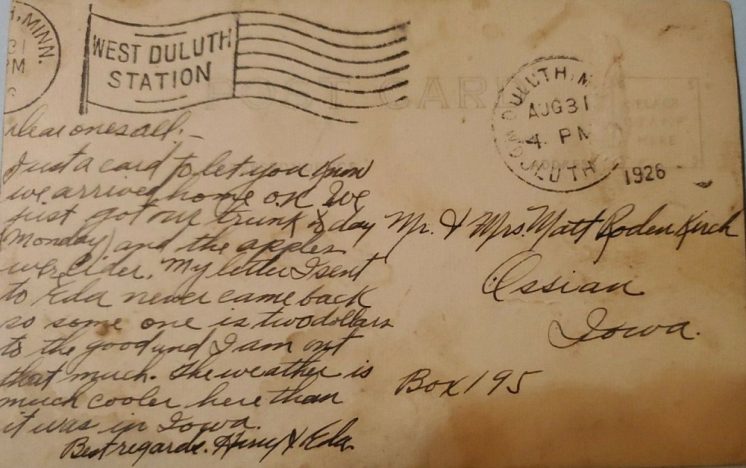 , MINN.
31
PM
WEST DULUTH
STATION
POST CARD
DULUTH, M
AUG 31
4 PM
DULUTH
1926
Dear ones all, -
Just a card to let you know
we arrived home OK We
just got our trunk to day
(Monday) and the apples
were cider. My letter I sent
to Eda never came back
so some one is two dollars
to the good and I am out
that much. The weather is
much cooler here than
it was in Iowa.
Best regards. Henry & Eda
Mr. & Mrs. Matt Rodenkirch
Ossian
Iowa.
Box 195